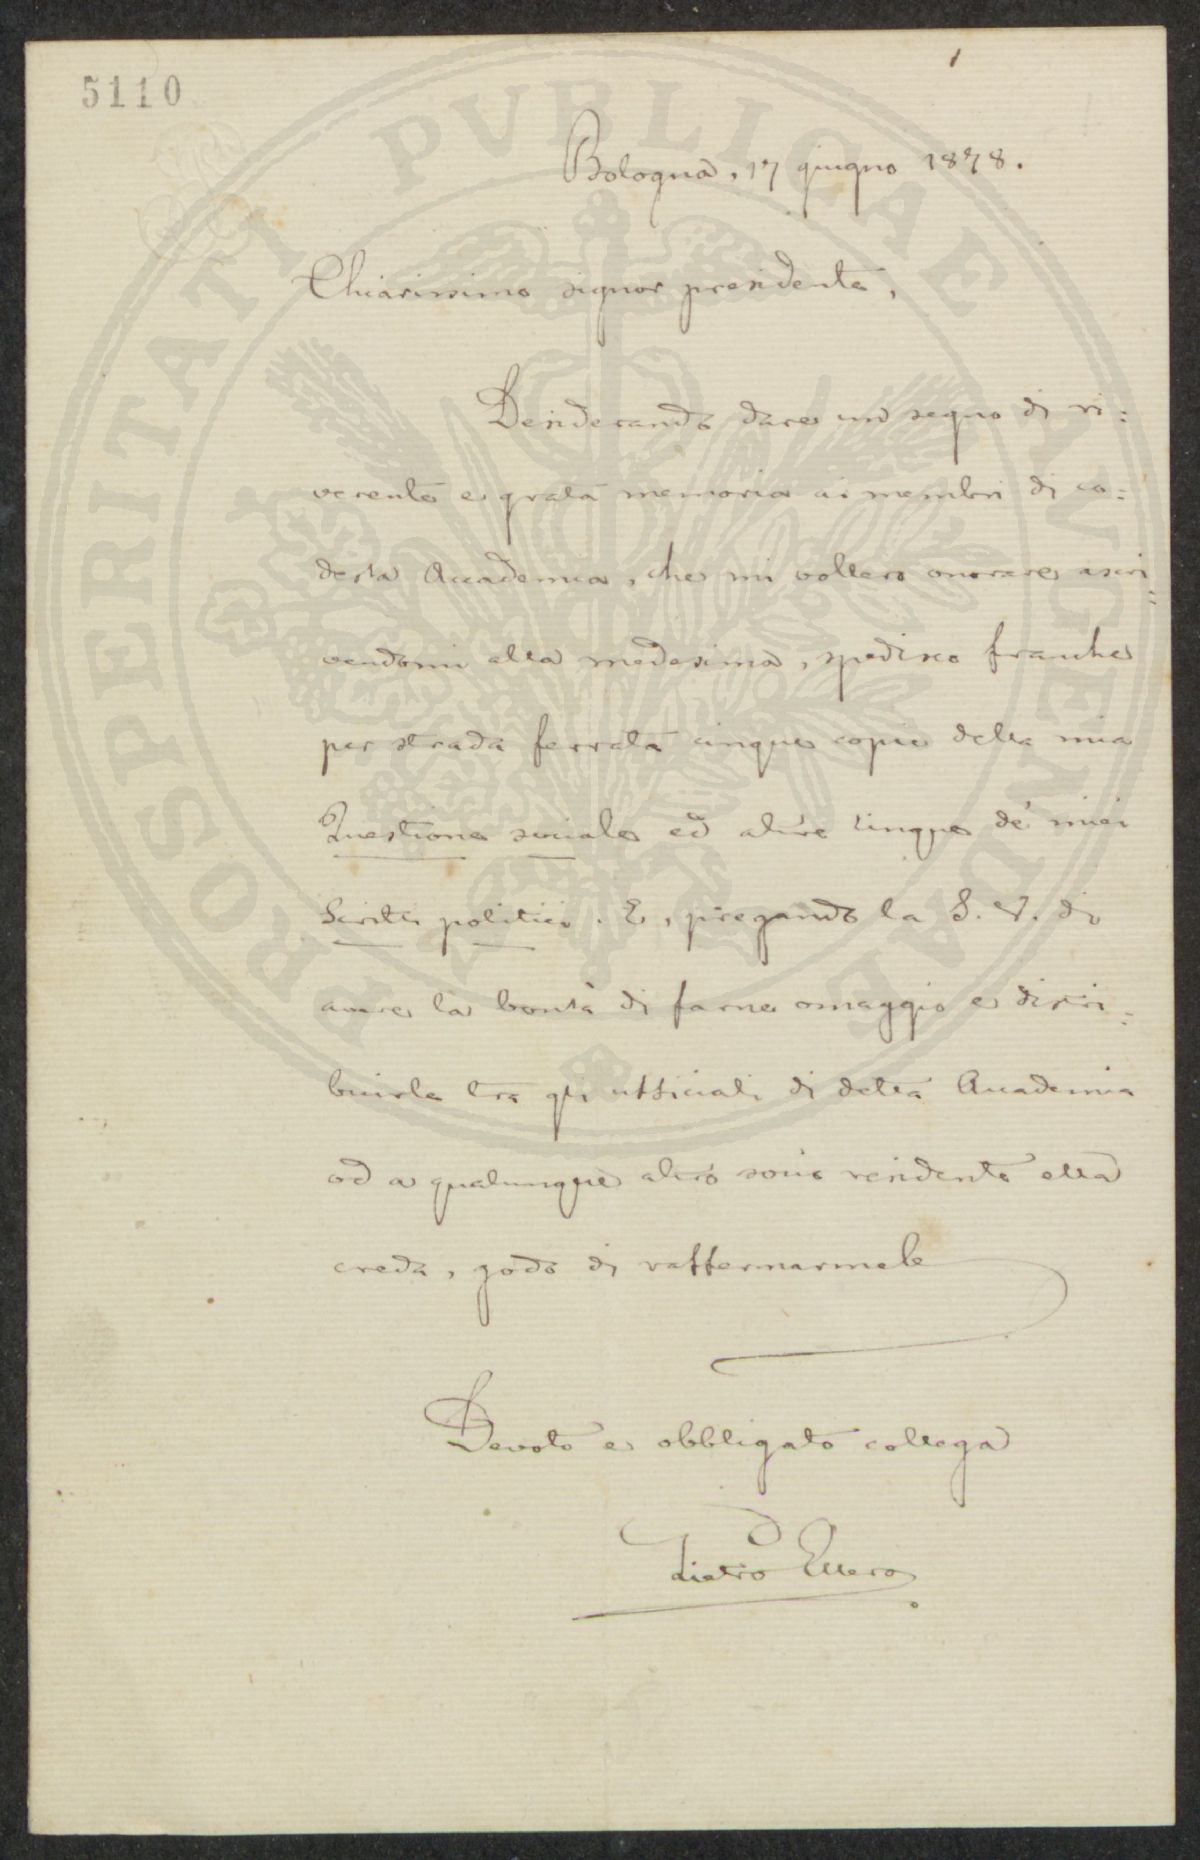 5110
1
Bologna, 17 giugno 1878.
Chiarissimo signor presidente,
Desiderando dare un segno di ri:
verente e grata memoria ai membri di co:
desta Accademia, che mi vollero onorare ascri:
vendomi alla medesima, spedisco franche
per strada ferrata cinque copie della mia
Questione sociale ed altre cinque de' miei
Scritti politici. E, pregando la S. V. di
avere la bontà di farne omaggio e distri:
buirle tra gli ufficiali di detta Accademia
od a qualunque altro socio residente ella
creda, godo di raffermarmele
Devoto e obbligato collega
Pietro Ellero
PROSPERITATI PVBLICAE AVGENDAE